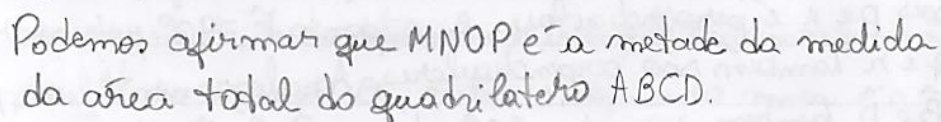 Podemos afirmar que MNOP é a metade da medida
da área total do quadrilatero ABCD.